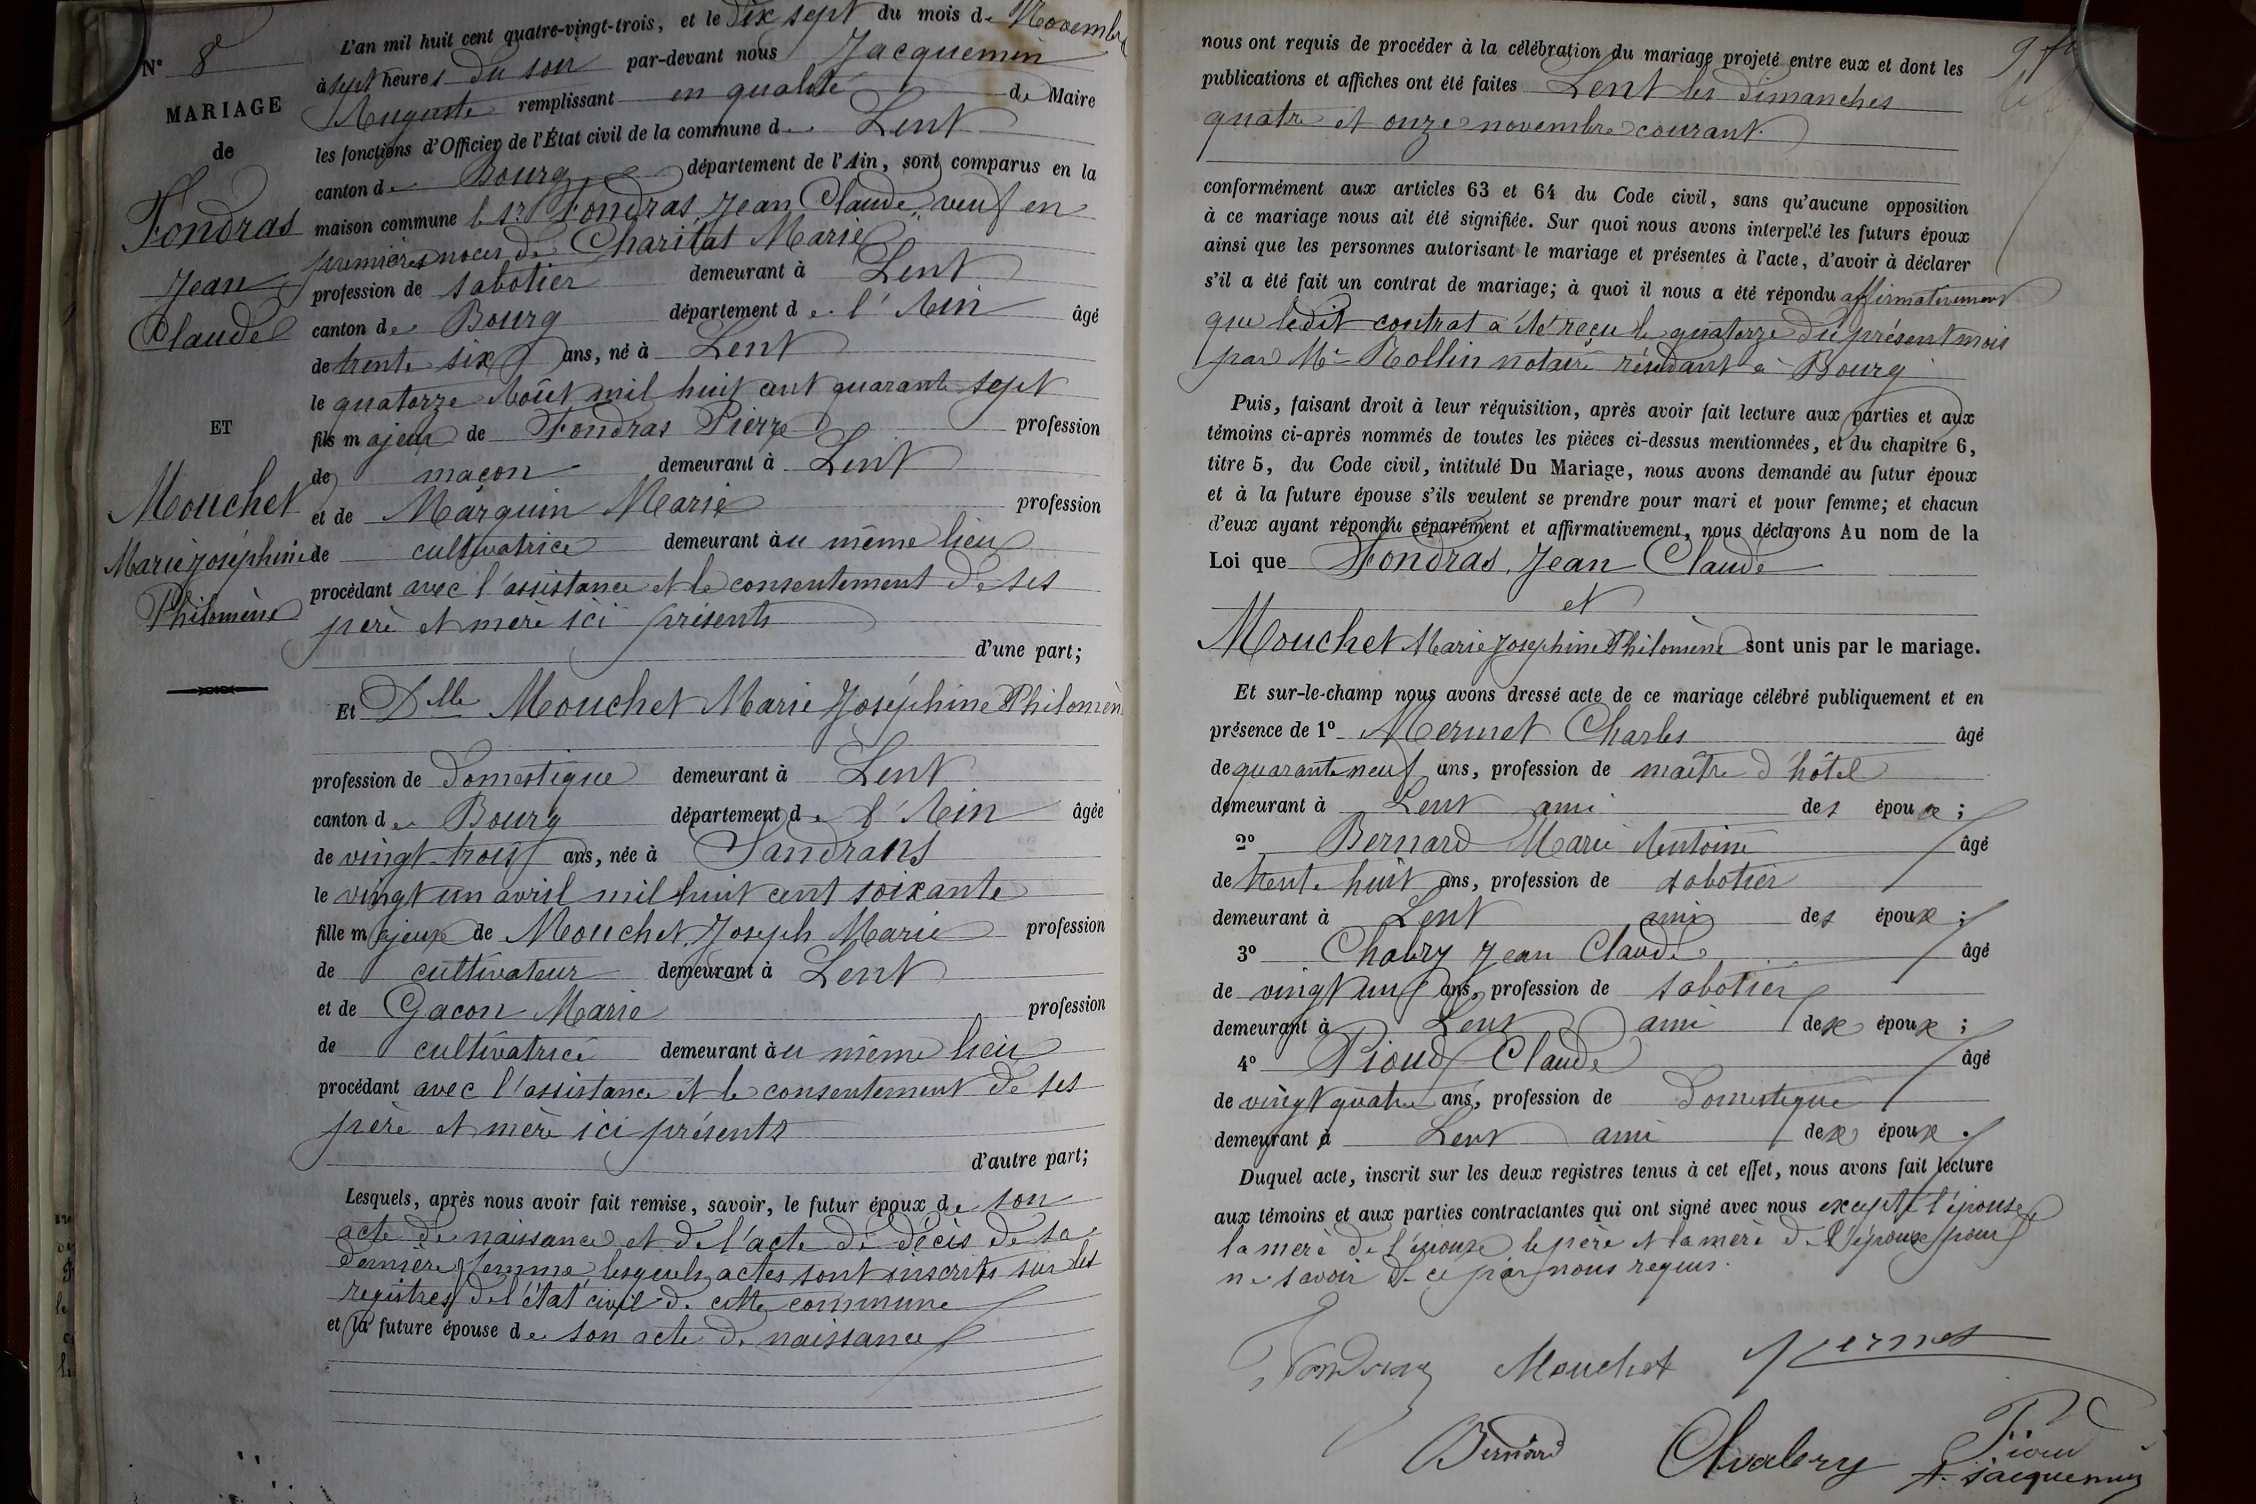 N° 8
MARIAGE
de
Fondras
Jean
Claude
ET
Mouchet
Marie Joséphine
Philomène
L'an mil huit cent quatre-vingt-trois, et le dix sept du mois de Novembre
à sept heures du soir par-devant nous Jacquemin
Auguste remplissant en qualité de Maire
les fonctions d'Officier de l'État civil de la commune de Lent
canton de Bourg département de l'Ain, sont comparus en la
maison commune le Sr Fondras Jean Claude, veuf en
premières noces de Charitat Marie
profession de sabotier demeurant à Lent
canton de Bourg département de l'Ain âgé
de trente six ans, né à Lent
le quatorze Août mil huit cent quarante sept
fils majeur de Fondras Pierre profession
de maçon demeurant à Lent
et de Marguin Marie profession
de cultivatrice demeurant au même lieu
procédant avec l'assistance et le consentement de ses
père et mère ici présents
d'une part;
Et Dlle Mouchet Marie Joséphine Philomène
profession de domestique demeurant à Lent
canton de Bourg département de l'Ain âgée
de vingt-trois ans, née à Sandrans
le vingt un avril mil huit cent soixante
fille majeure de Mouchet Joseph Marie profession
de cultivateur demeurant à Lent
et de Gacon Marie profession
de cultivatrice demeurant au même lieu
procédant avec l'assistance et le consentement de ses
père et mère ici présents
d'autre part;
Lesquels, après nous avoir fait remise, savoir, le futur époux de son
acte de naissance et de l'acte de décès de sa
dernière femme lesquels actes sont inscrits sur les
registres de l'état civil de cette commune
et la future épouse de son acte de naissance
nous ont requis de procéder à la célébration du mariage projeté entre eux et dont les
publications et affiches ont été faites Lent les dimanches
quatre et onze novembre courant.
conformément aux articles 63 et 64 du Code civil, sans qu'aucune opposition
à ce mariage nous ait été signifiée. Sur quoi nous avons interpellé les futurs époux
ainsi que les personnes autorisant le mariage et présentes à l'acte, d'avoir à déclarer
s'il a été fait un contrat de mariage; à quoi il nous a été répondu affirmativement
que ledit contrat a été reçu le quatorze du présent mois
par Me Rollin notaire résidant à Bourg
Puis, faisant droit à leur réquisition, après avoir fait lecture aux parties et aux
témoins ci-après nommés de toutes les pièces ci-dessus mentionnées, et du chapitre 6,
titre 5, du Code civil, intitulé Du Mariage, nous avons demandé au futur époux
et à la future épouse s'ils veulent se prendre pour mari et pour femme; et chacun
d'eux ayant répondu séparément et affirmativement, nous déclarons Au nom de la
Loi que Fondras, Jean Claude
et
Mouchet Marie Joséphine Philomène sont unis par le mariage.
Et sur-le-champ nous avons dressé acte de ce mariage célébré publiquement et en
présence de 1° Mermet Charles âgé
de quarante neuf ans, profession de maître d'hôtel
demeurant à Lent ami des époux;
2° Bernard Marie Antoine âgé
de trente huit ans, profession de sabotier
demeurant à Lent ami des époux;
3° Chabry Jean Claude âgé
de vingt un ans, profession de sabotier
demeurant à Lent ami des époux;
4° Pioud Claude âgé
de vingt quatre ans, profession de domestique
demeurant à Lent ami des époux.
Duquel acte, inscrit sur les deux registres tenus à cet effet, nous avons fait lecture
aux témoins et aux parties contractantes qui ont signé avec nous excepté l'épouse,
la mère de l'époux, le père et la mère de l'épouse pour
ne savoir de ce par nous requis.
Fondras Mouchet Mermet
Bernard Chabry Pioud
A. Jacquemin